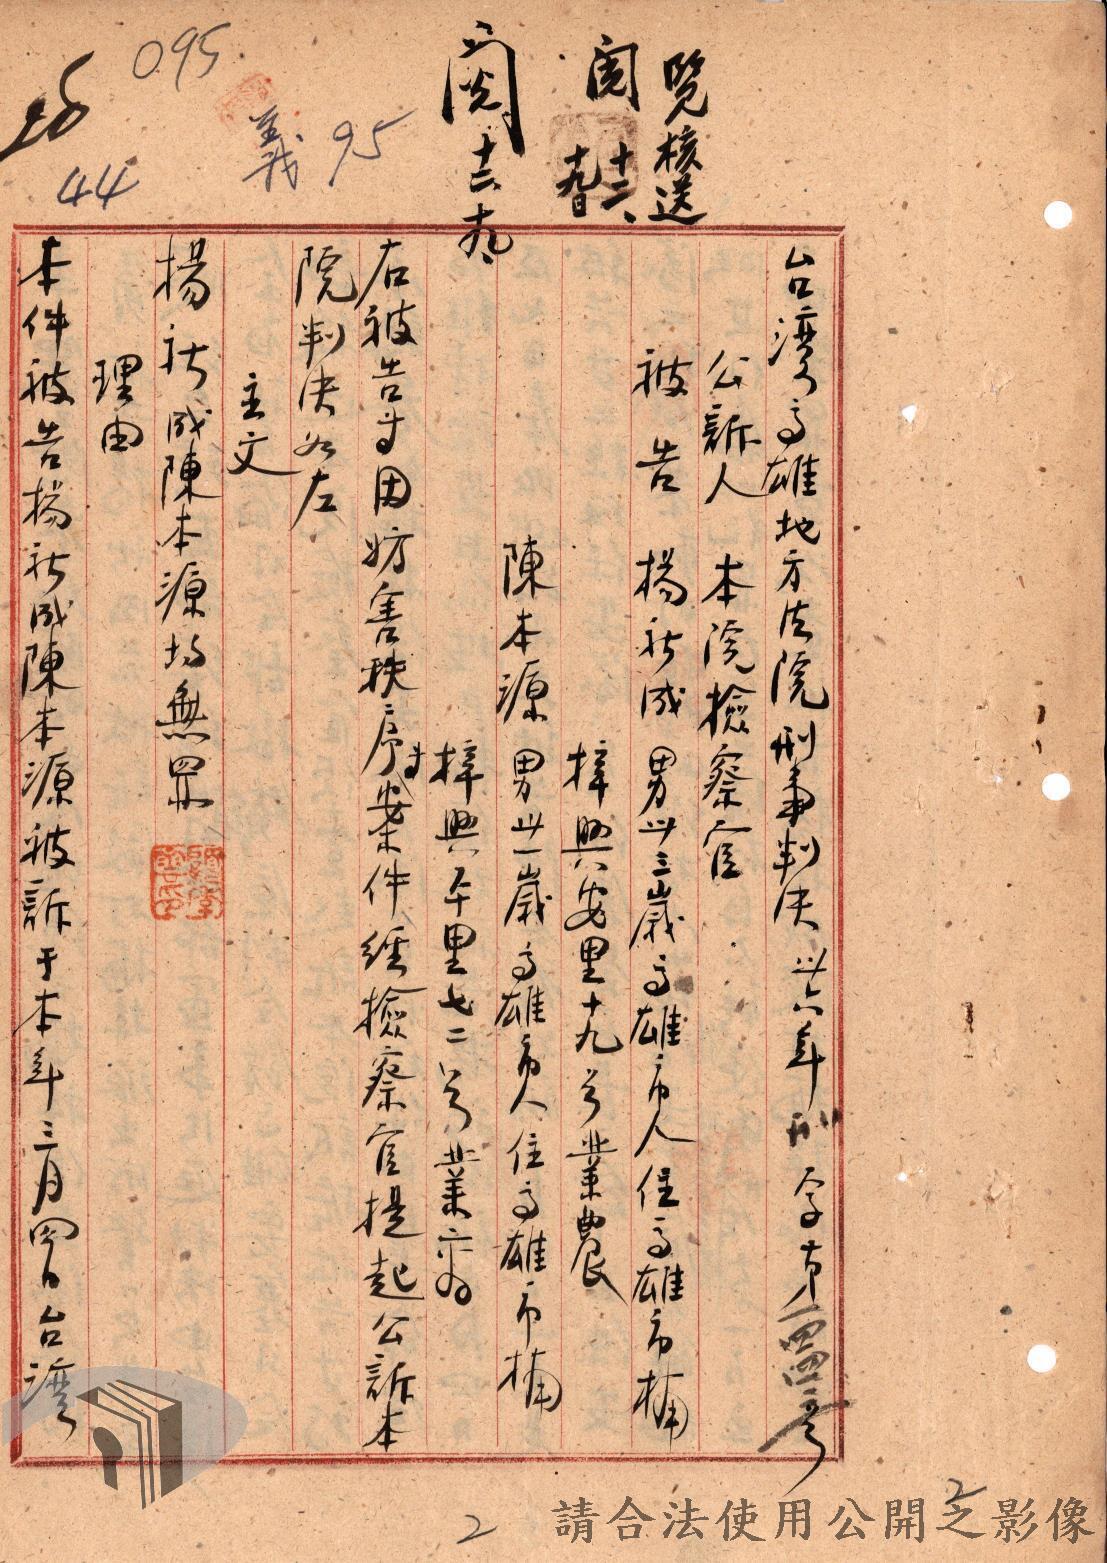 095
44
義 95
閱 十二、十九、
閱 十二、十九日
覽核送
台湾高雄地方法院刑事判决 卅六年刑字第 号
公訴人 本院檢察官
被告 楊新成 男卅三歲高雄市人住高雄市楠
梓興安里十九号業農
陳本源 男卅一歲高雄市人住高雄市楠
梓興平里七二号業商
右被告等因妨害秩序等案件經檢察官提起公訴本
院判决如左
主文
楊新成陳本源均無罪
理由
本件被告楊新成陳本源被訴于本年三月四日台湾
2
2
請合法使用公開之影像